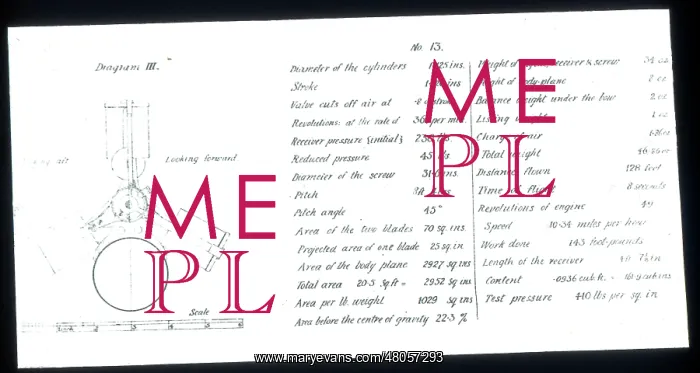 No. 13.
Diagram III.
Looking forward
Scale
Diameter of the cylinders ins.
Stroke ins
Valve cuts off at
Revolutions: at the rate of per min.
Receiver pressure {initial}
Reduced pressure 45
Diameter of the screw ins.
Pitch
Pitch angle 45°
Area of the two blades 70 sq. ins.
Projected area of one blade 25 sq. in
Area of the body plane 2927 sq ins
Total area 20.5 sq ft = 2952 sq ins
Area per lb. weight 1029 sq ins
Area before the centre of gravity 22.3 %
Weight of receiver & screw 54 oz
Weight of body-plane oz
Balance weight under the bow 2 oz
oz
Charge of air
Total weight
Distance flown 128 feet
Time of flight 8 seconds
Revolutions of engine 49
Speed 10.34 miles per hour
Work done foot-pounds
Length of the receiver
Content .0936 cub ft. = cub ins
Test pressure 410 lbs per sq. in
ME
PL
ME
PL
www.maryevans.com/48057293